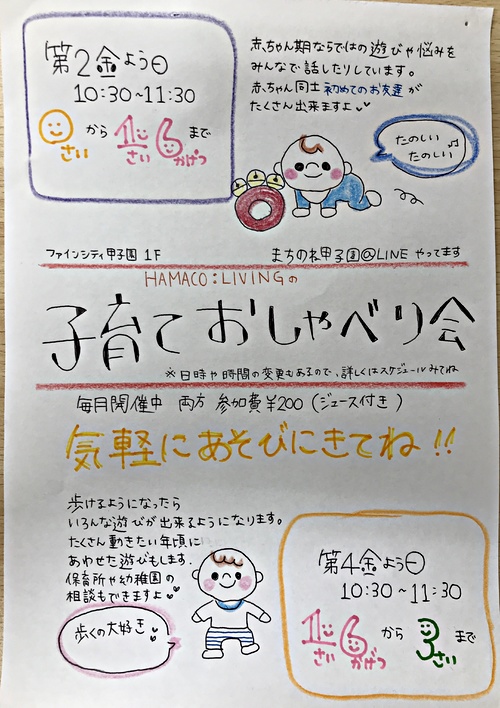 第2金よう日
10:30~11:30
0さい から 1さい6かげつ まで
赤ちゃん期ならではの遊びや悩みを
みんなで話したりしています。
赤ちゃん同士初めてのお友達が
たくさん出来ますよ♥♥
たのしい♫
たのしい
ファインシティ甲子園 1F
まちのね甲子園@LINE やってます
HAMACO:LIVINGの
子育ておしゃべり会
※日時や時間の変更もあるので、詳しくはスケジュールみてね
毎月開催中 両方 参加費¥200 (ジュース付き)
気軽にあそびにきてね!!
歩けるようになったら
いろんな遊びが出来るようになります。
たくさん動きたい年頃に
あわせた遊びもします.
保育所や幼稚園の
相談もできますよ♥♥
歩くの大好き♥♥
第4金よう日
10:30~11:30
1さい6かげつ から 3さい まで